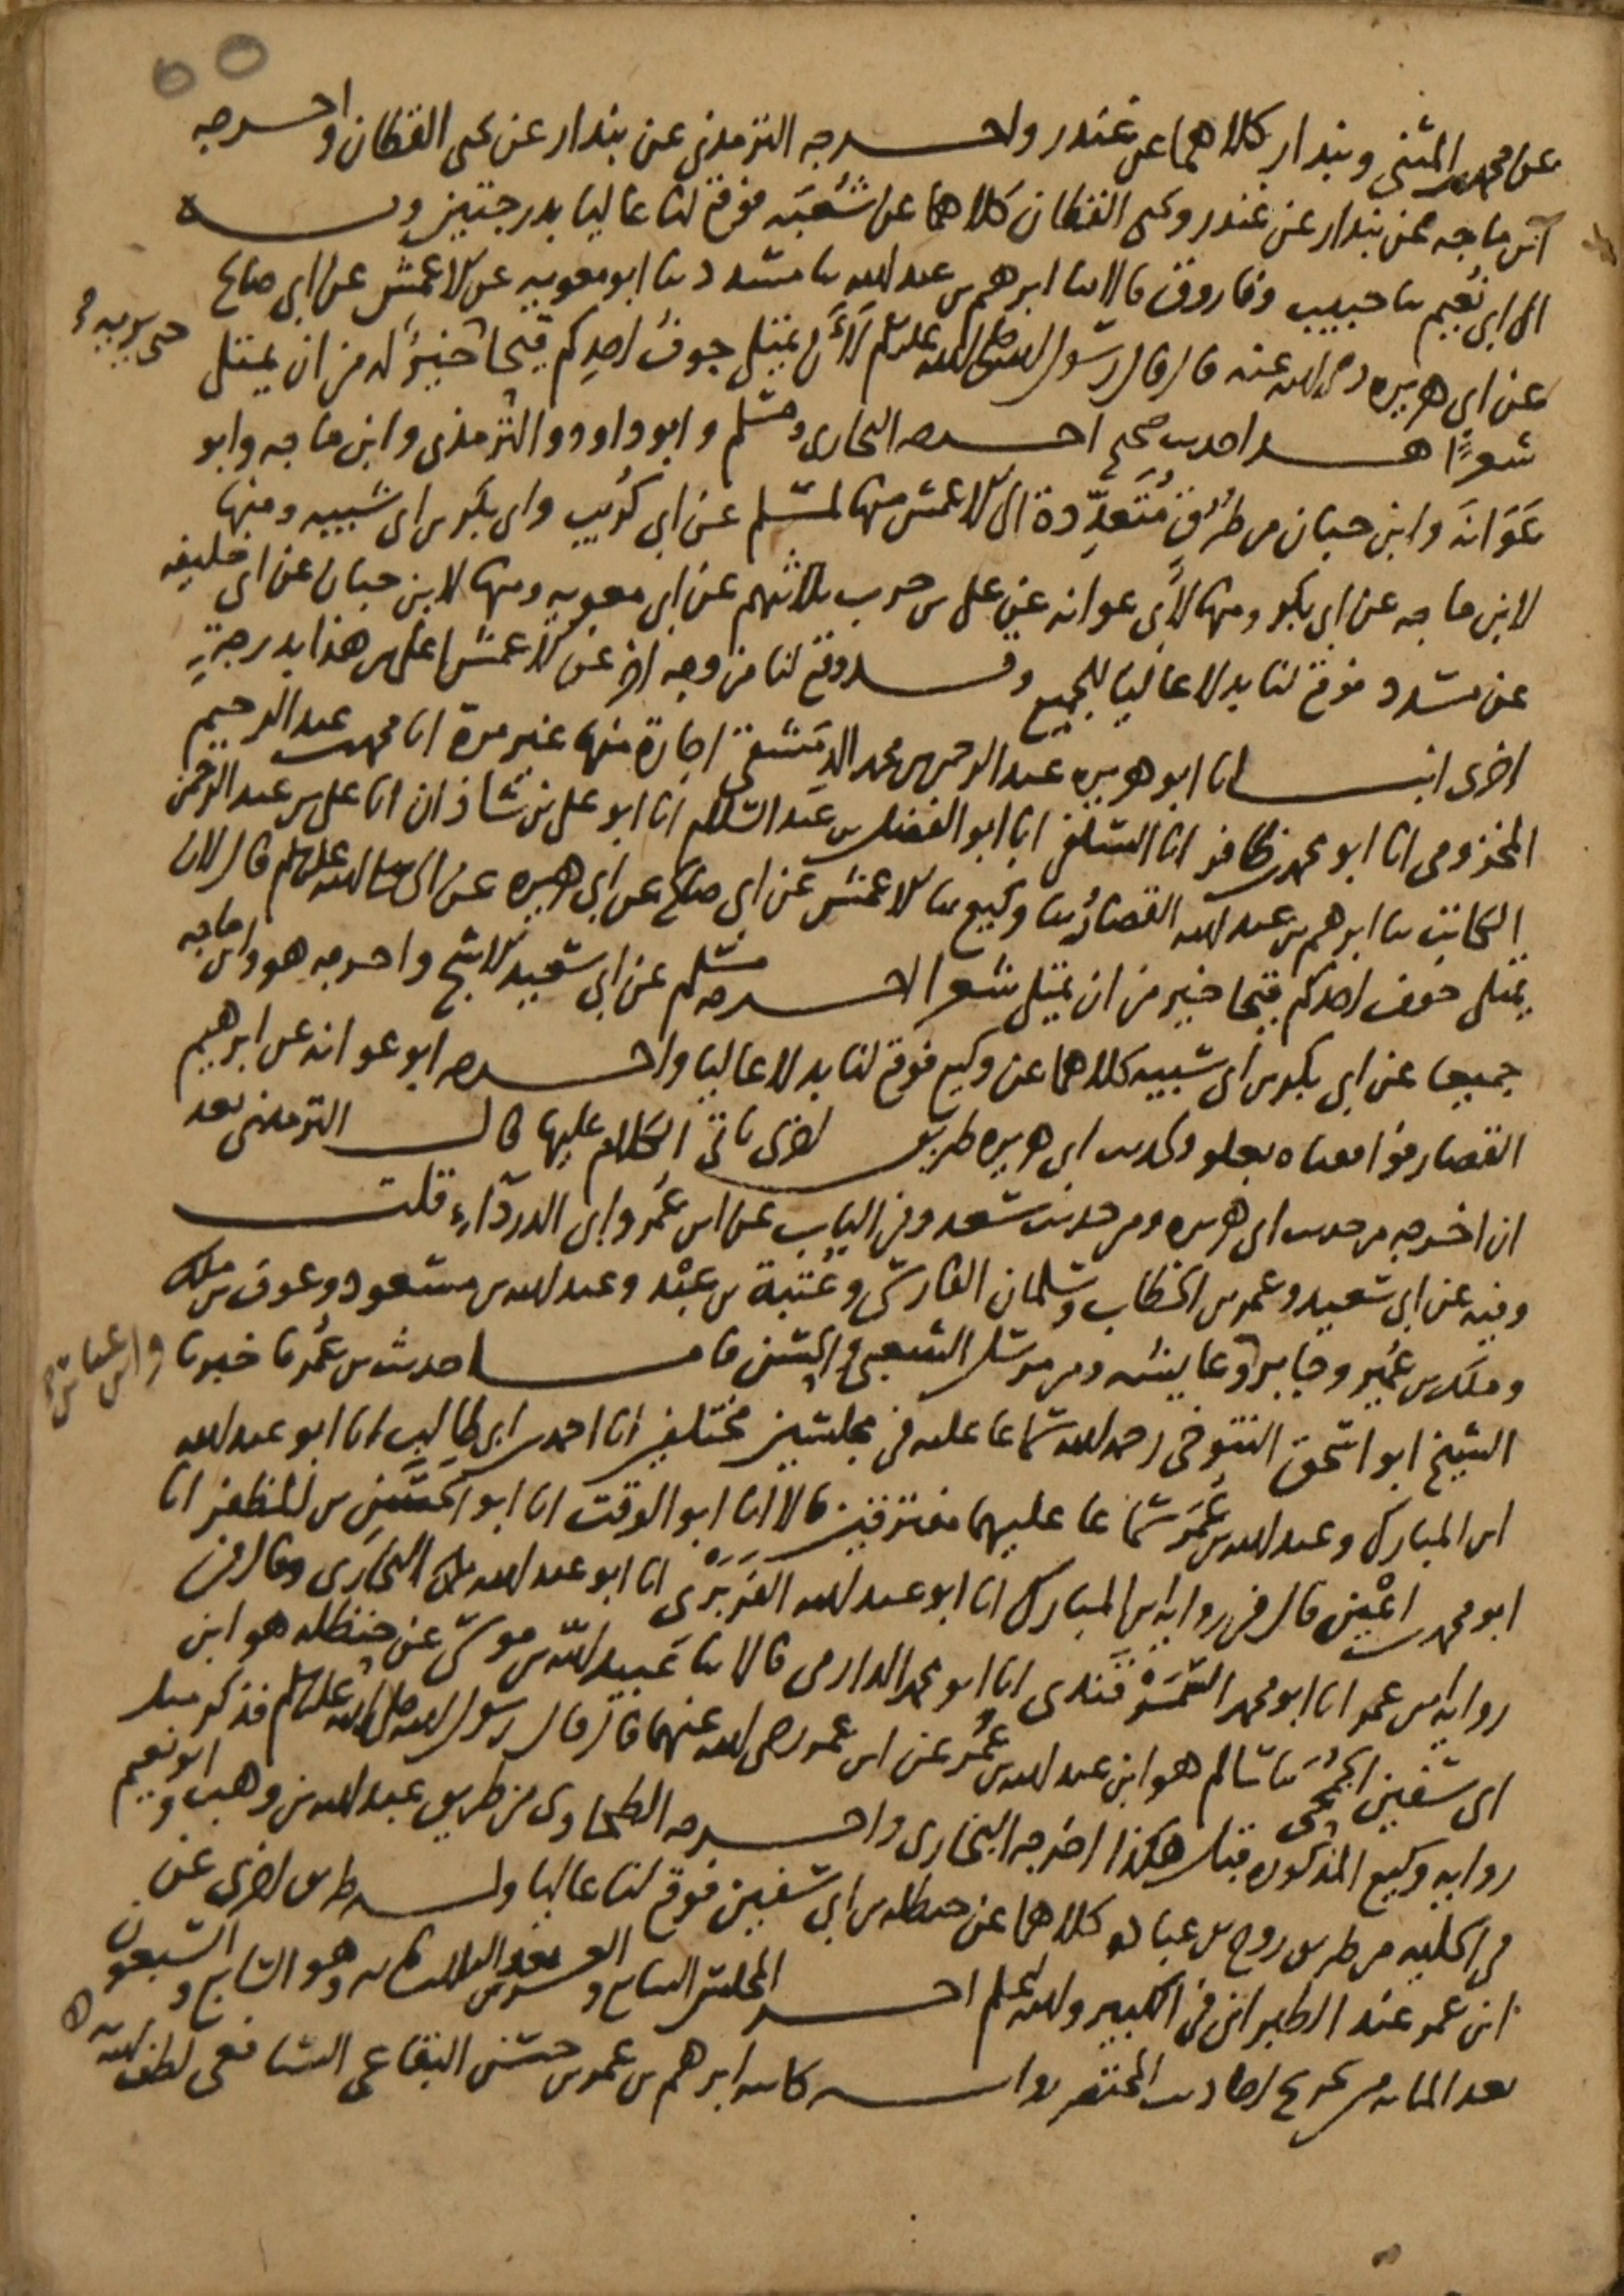 عن محمد بن المثنى وبندار كلاهما عن غندر واخرجه الترمذي عن بندار عن يحيى القطان واخرجه
ابن ماجه عن بندار عن غندر ويحيى القطان كلاهما عن شُعبَه فوقع لنا عاليا بدرجتين وبه
الى ابي نُعيم ثنا حبيب وفاروق قالا ثنا ابرهيم بن عبد الله ثنا مسدد ثنا ابو معويه عن الاعمش عن ابي صالح
عن ابي هريره رضي الله عنه قال قال رسول الله صلى الله عليه وسلم لَأَن يمتلي جوفُ احدِكم قيحًا خيرٌ له من ان يمتلي
حتى يريه
شعرًا هذا حديث صحيح اخرجه البخاري ومسلم وابو داود والترمذي وابن ماجه وابو
عَوَانَه وابن حبان من طُرُقٍ مُتَعدِّدة الى الاعمش منها لمسلم عن ابي كُرَيب وابي بكر بن ابي شيبه ومنها
لابن ماجه عن ابي بكر ومنها لأبي عوانه عن علي بن حرب ثلاثتهم عن ابي معويه ومنها لابن حبان عن ابي خليفه
عن مسدد فوقع لنا بدلا عاليا للجميع وقد وقع لنا من وجه اخر عن الاعمش اعلى من هذا بدرجةٍ
اخرى انبـانا ابو هريره عبد الرحمن بن محمد الدمشقي اجازة منها غير مرة انا محمد بن عبد الرحيم
المخزومي انا ابو محمد بن ظافر انا السلفي انا ابو الفضل بن عبد السلام انا ابو علي بن شاذان انا علي بن عبد الرحمن
الكاتب ثنا ابرهيم بن عبد الله القصار ثنا وكيع ثنا الاعمش عن ابي صالح عن ابي هريره عن النبي صلى الله عليه وسلم قال لان
يمتلي جوف احدكم قيحا خير من ان يمتلي شعرا اخرجه مسلم عن ابي سعيد الاشج واخرجه هو وابن ماجه
جميعا عن ابي بكر بن ابي شيبه كلاهما عن وكيع فوقع لنا بدلا عاليا واخرجه ابو عوانه عن ابرهيم
القصار فوافقناه بعلو ولحديث ابي هريره طريق اخرى ياتي الكلام عليها قال الترمذي بعد
ان اخرجه من حديث ابي هريره ومن حديث سعد وفي الباب عن ابن عُمر وابي الدرداء قلت
وفيه عن ابي سعيد وعمر بن الخطاب وسلمان الفارسي وعُتبة بن عبْد وعبد الله بن مسعود وعوف بن ملك
وملك بن عُمير وجابر وعايشه ومن مرسل الشعبي والحسن فاما حديث ابن عُمر فاخبرنا
وابن عباس
الشيخ ابو اسحق التنوخي رحمه الله سماعا عليه في مجلسين مختلفين انا احمد بن ابي طالب انا ابو عبد الله
ابن المبارك وعبد الله بن عُمَر سماعا عليهما مفترقين قالا انا ابو الوقت انا ابو الحَسَنِ بن المظفر انا
ابو محمد بن اعْيَن قال في رواية ابن المبارك انا ابو عبد الله الفَرَبْري انا ابو عبد الله البخاري وقال في
رواية ابن عمر انا ابو محمد السَّمَرْقَندي انا ابو محمد الدارمي قالا ثنا عُبيد الله بن موسى عن حنظله هو ابن
ابي سفين الجُمحي ثنا سالم هو ابن عبد الله بن عُمر عن ابن عمر رضي الله عنهما قال قال رسول الله صلى الله عليه وسلم فذكر مثل
رواية وكيع المذكوره قبل هكذا اخرجه البخاري واخرجه الطحاوي من طريق عبد الله بن وهب وابو نعيم
في الحليه من طريق روح بن عباده كلاهما عن حنظله بن ابي سفين فوقع لنا عاليا وله طريق اخرى عن
ابن عمر عند الطبراني في الكبير والله اعلم اخر المجلس السابع والعشرين بعد الثلاث مايه وهو السابع والتسعون
بعد المايه من تخريج احاديث المختصر رواية كاتبه ابرهيم بن عمر بن حسن البقاعي الشافعي لطف الله به